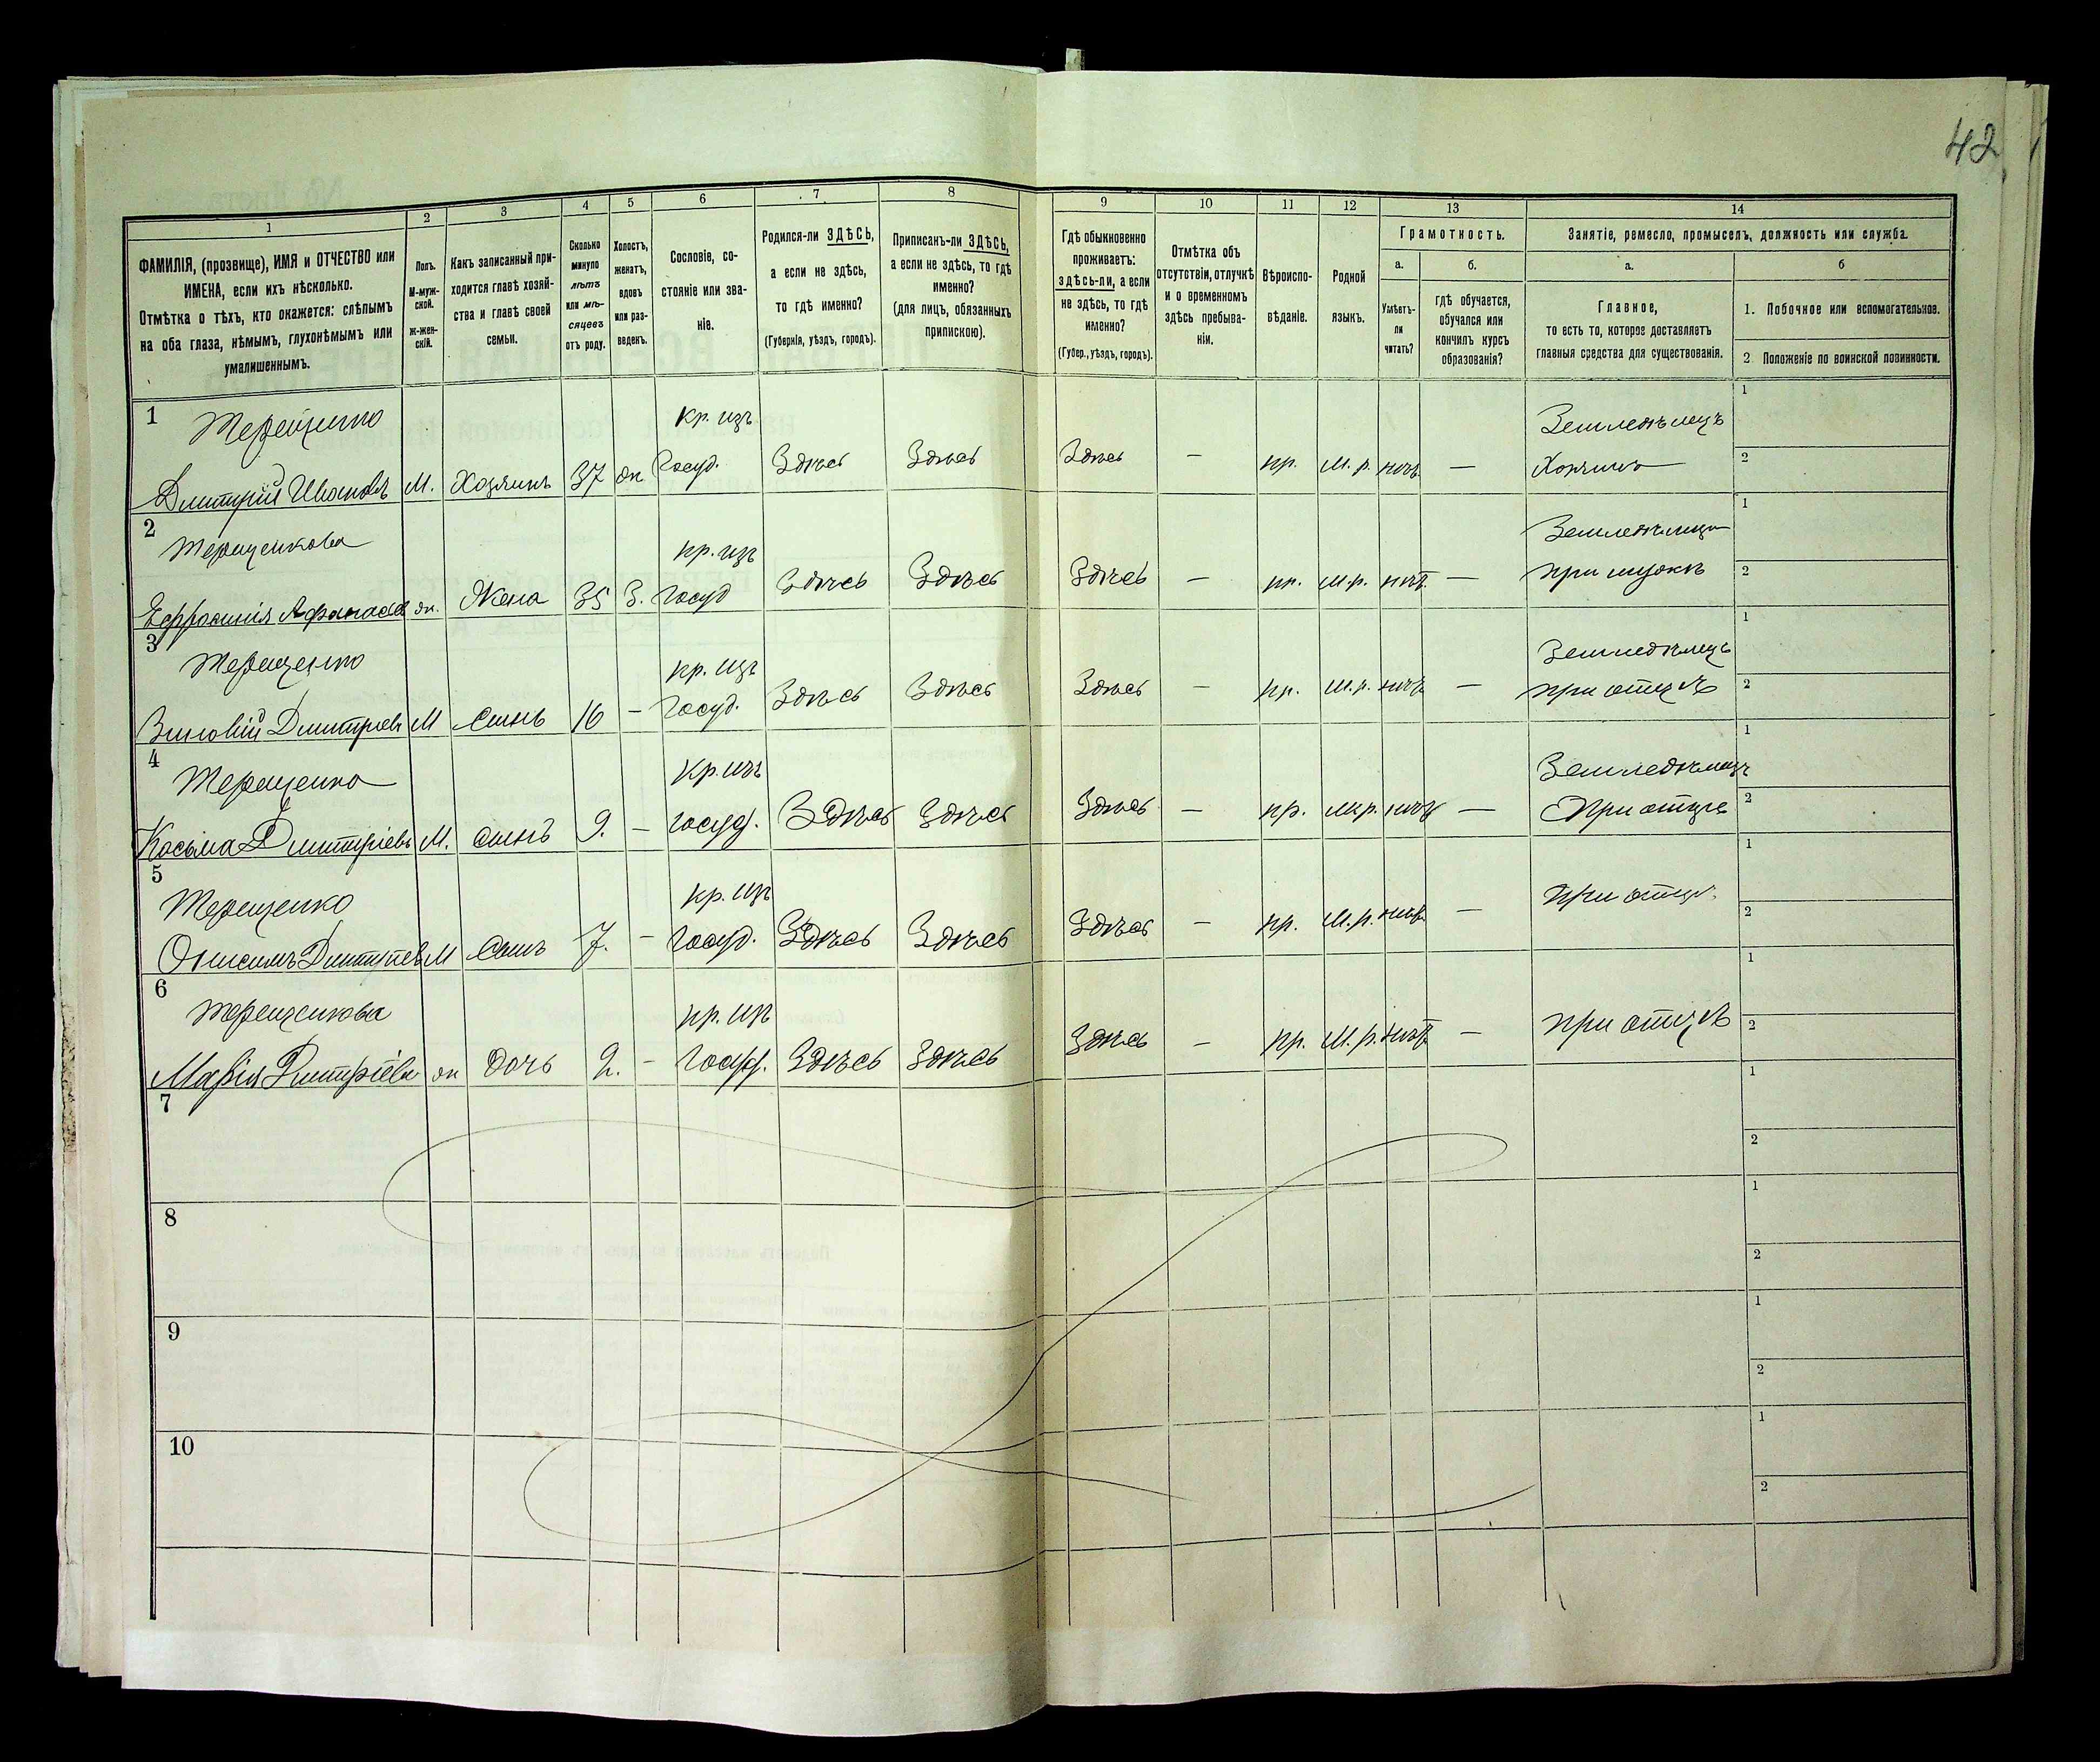 42
1 2 3 4 5 6 7 8 9 10 11 12 13 14
ФАМИЛІЯ, (прозвище), ИМЯ и ОТЧЕСТВО или
ИМЕНА, если ихъ нѣсколько.
Отмѣтка о тѣхъ, кто окажется: слѣпымъ
на оба глаза, нѣмымъ, глухонѣмымъ или
умалишеннымъ.
Полъ.
М-муж-
ской.
ж-жен-
скій.
Какъ записанный при-
ходится главѣ хозяй-
ства и главѣ своей
семьи.
Сколько
минуло
лѣтъ
или мѣ-
сяцевъ
отъ роду.
Холостъ,
женатъ,
вдовъ
или раз-
веденъ.
Сословіе, со-
стояніе или зва-
ніе.
Родился-ли ЗДѢСЬ,
а если не здѣсь,
то гдѣ именно?
(Губернія, уѣздъ, городъ).
Приписанъ-ли ЗДѢСЬ,
а если не здѣсь, то гдѣ
именно?
(для лицъ, обязанныхъ
припискою).
Гдѣ обыкновенно
проживаетъ:
здѣсь-ли, а если
не здѣсь, то гдѣ
именно?
(Губер., уѣздъ, городъ).
Отмѣтка объ
отсутствіи, отлучкѣ
и о временномъ
здѣсь пребыва-
ніи.
Вѣроиспо-
вѣданіе.
Родной
языкъ.
Грамотность.
а. б.
Умѣетъ-
ли
читать?
гдѣ обучается,
обучался или
кончилъ курсъ
образованія?
Занятіе, ремесло, промыселъ, должность или служба.
а. б
Главное,
то есть то, которое доставляетъ
главныя средства для существованія.
1. Побочное или вспомогательное.
2 Положеніе по воинской повинности.
1 Терещенко кр. изъ Земледѣлецъ 1
Дмитрій Ивановъ М. Хозяинъ 37 ж Госуд. Здѣсь Здѣсь Здѣсь — пр. М. р. нѣтъ — Хозяинъ 2
2 Терещенкова кр. изъ Земледѣлица 1
Ефросинія Афанасьев ж. Жена 35 З. Госуд Здѣсь Здѣсь Здѣсь — пр. М.р. нѣтъ — при мужѣ 2
3 Терещенко кр. изъ Земледѣлецъ 1
Зиновій Дмитріевъ М Сынъ 16 — Госуд. Здѣсь Здѣсь Здѣсь — пр. М.р. нѣтъ — при отцѣ 2
4 Терещенко кр. изъ Земледѣлецъ 1
Косьма Дмитріевъ М. сынъ 9. — госуд. Здѣсь Здѣсь Здѣсь — пр. м.р. нѣтъ — При отцѣ 2
5 Терещенко кр. изъ при отцѣ. 1
Онисимъ Дмитріев М Сынъ 7. — Госуд. Здѣсь Здѣсь Здѣсь — пр. М.р. нѣтъ — 2
6 Терещенкова кр. изъ при отцѣ 1
Марія Дмитріева ж дочь 2. — Госуд. Здѣсь Здѣсь Здѣсь — пр. М.р. нѣтъ — 2
7 1
2
8 1
2
9 1
2
10 1
2